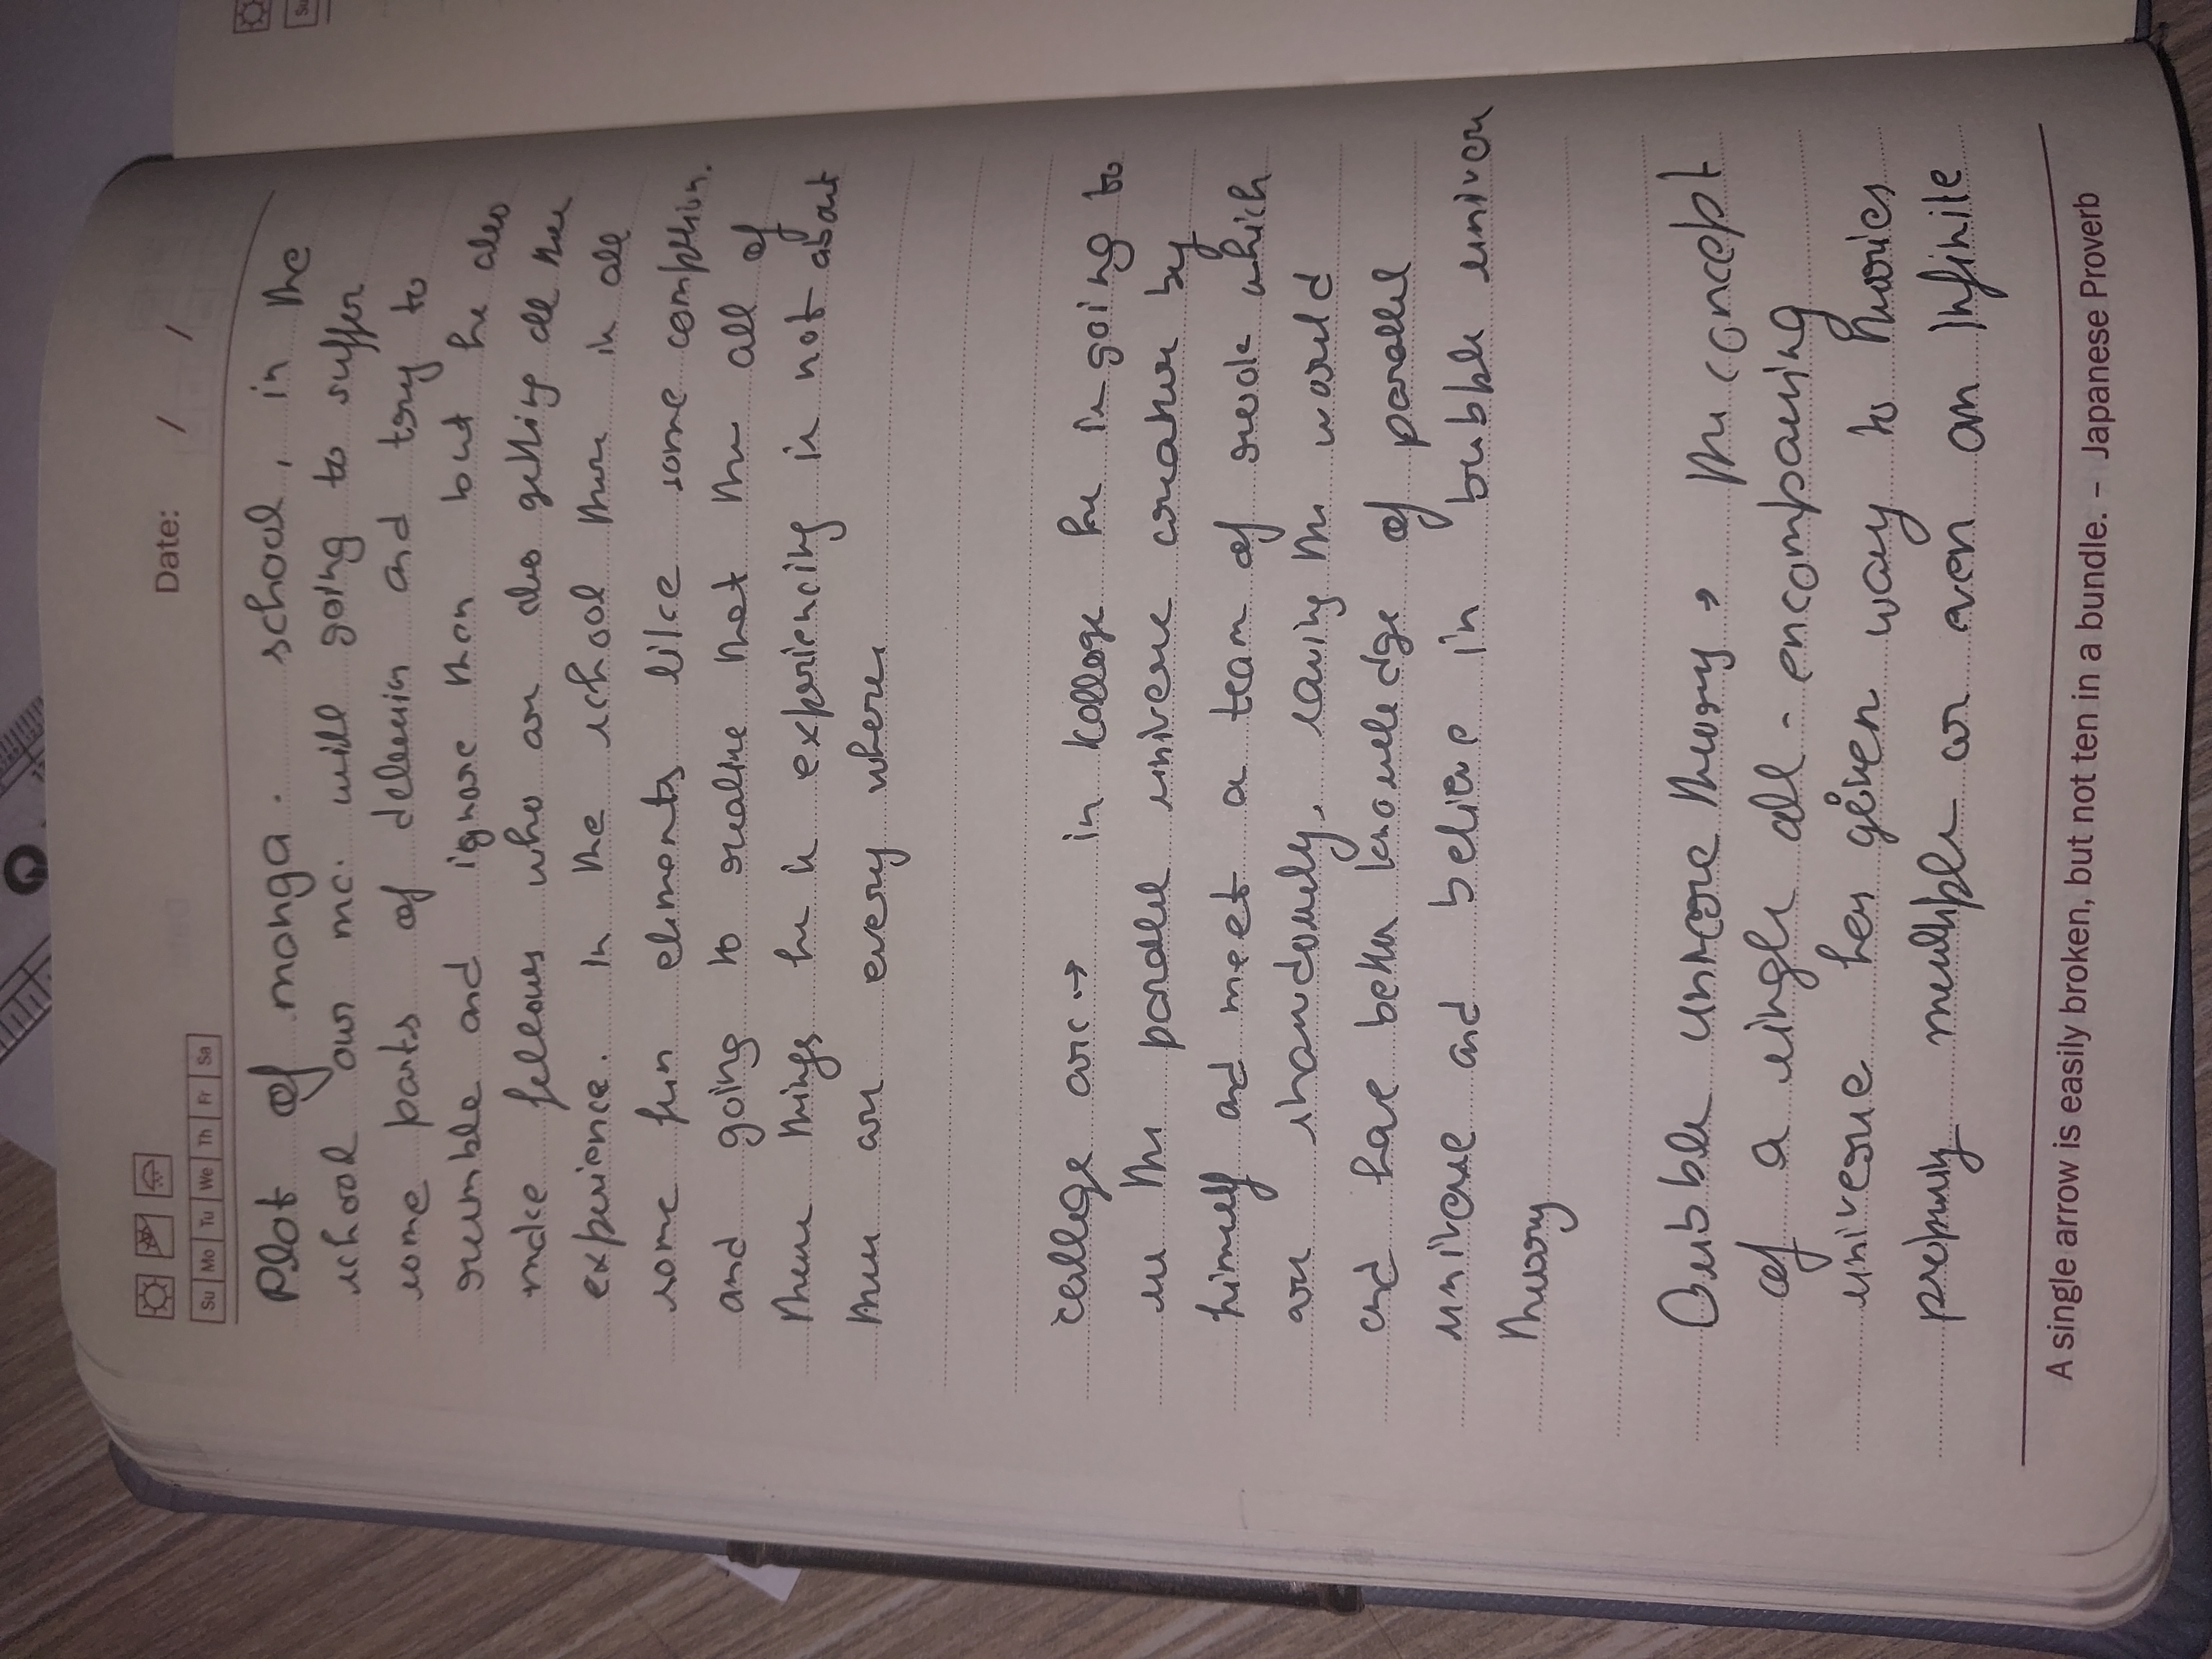 Date: / /
Su Mo Tu We Th Fr Sa
Plot of manga. school, in the
school our mc. will going to suffer
some parts of and try to
rumble and ignore them but he also
make fellows who are also getting all
experience. In the school there is all
some fun eliments like some
and going to realize that the all of
these things he is experiencing is not about
are every where
college arc → in kollage he is going to
the parallel universe creature by
himself and meet a team of which
are leaving the world
and have better knowledge of parallel
universe and believe in bubble
theory
Bubble universe theory → The concept
of a single all-encompassing
universe has given way to theories
multiple or even an infinite
A single arrow is easily broken, but not ten in a bundle. – Japanese Proverb